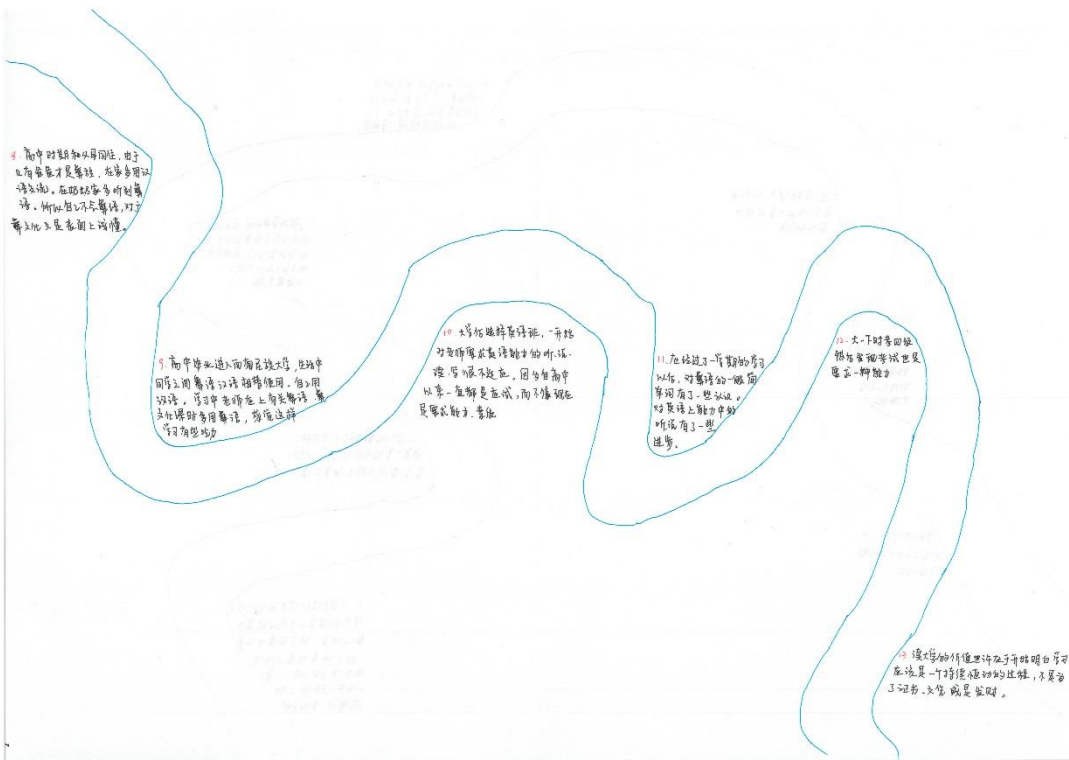 8. 高中时期和父母同住，由于
只有爸爸才是彝族，在家多用汉
语交流。在奶奶家多听到彝
语。所以自己不会彝语，对于
彝文化只是表面上读懂。
9. 高中毕业进入西南民族大学，生活中
同学之间彝语汉语相替使用，自己用
汉语。学习中老师在上有关彝语、彝
文化课时多用彝语，感觉这样
学习有些吃力
10. 大学后选择英语班，一开始
对老师要求英语能力的听、说、
读、写很不适应，因为自高中
以来一直都是应试，而不像现在
是要求能力、掌握
11. 在经过了一学期的学习
以后，对彝语的一般简
单词有了一些认识。
对英语上能力中的
听说有了一些
进步。
12. 大一下时考四级
然后发现考试也是
要求一种能力
13 读大学的价值也许在于开始明白学习
应该是一个持续恒动的过程，不是为
了证书、文凭或是发财。